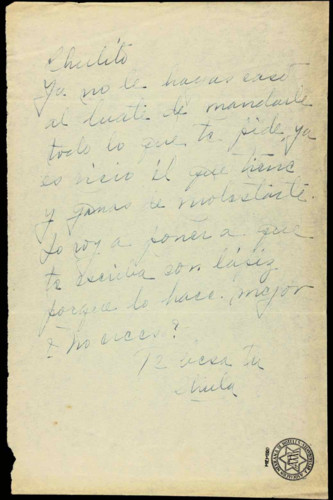 Chulito
Ya no le hagas caso
al cuate de mandarle
todo lo que te pide, ya
es vicio el que tiene
y ganas de molestarte.
Lo voy a poner a que
te escriba con lápiz
porque lo hace mejor
¿No crees?
Te besa tu
Chula